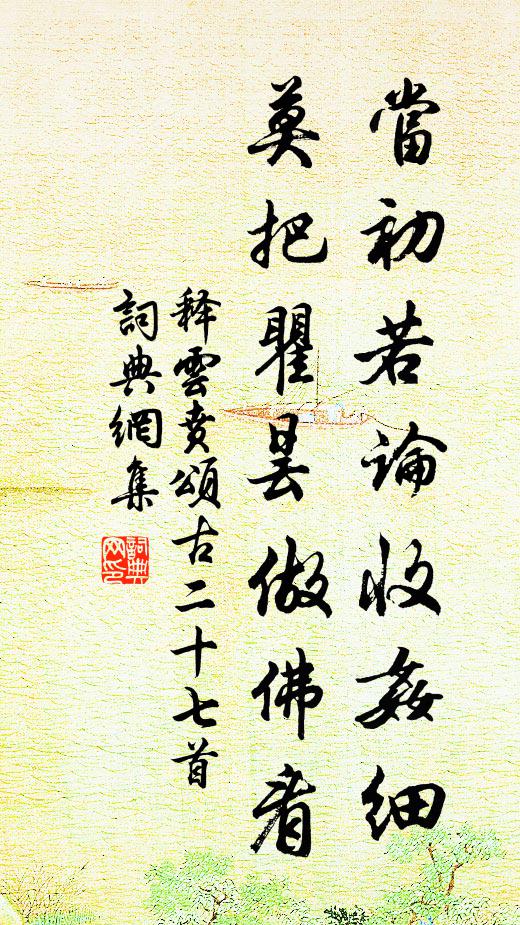 當初若論收姦細
莫把瞿曇做佛看
释雲賁頌古二十七首
詞典網集
詞典网印